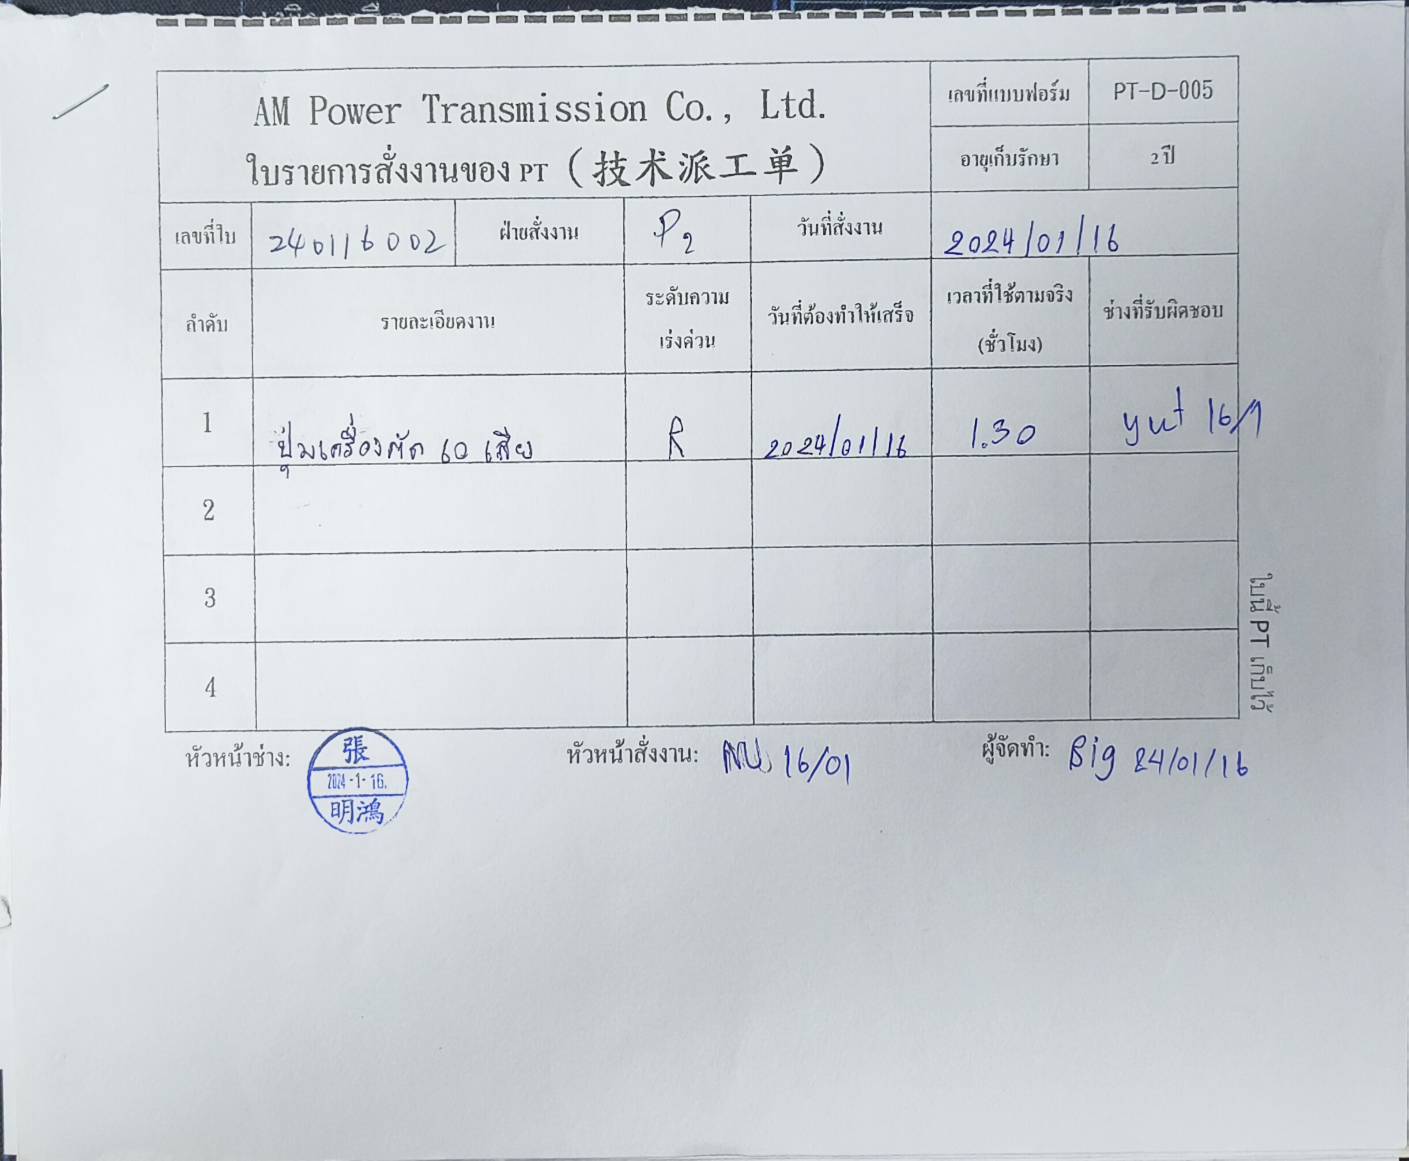 AM Power Transmission Co., Ltd.
ใบรายการสั่งงานของ PT (技术派工单)
เลขที่แบบฟอร์ม PT-D-005
อายุเก็บรักษา 2 ปี
เลขที่ใบ 240116002 ฝ่ายสั่งงาน P2 วันที่สั่งงาน 2024/01/16
ลำดับ รายละเอียดงาน ระดับความเร่งด่วน วันที่ต้องทำให้เสร็จ เวลาที่ใช้ตามจริง (ชั่วโมง) ช่างที่รับผิดชอบ
1 ปุ่มเครื่องตัด 60 เสีย R 2024/01/16 1.30 yut 16/1
2
3
4
หัวหน้าช่าง: 張 2024-1-16. 明鴻
หัวหน้าสั่งงาน: 16/01
ผู้จัดทำ: Big 24/01/16
ใบนี้ PT เก็บไว้